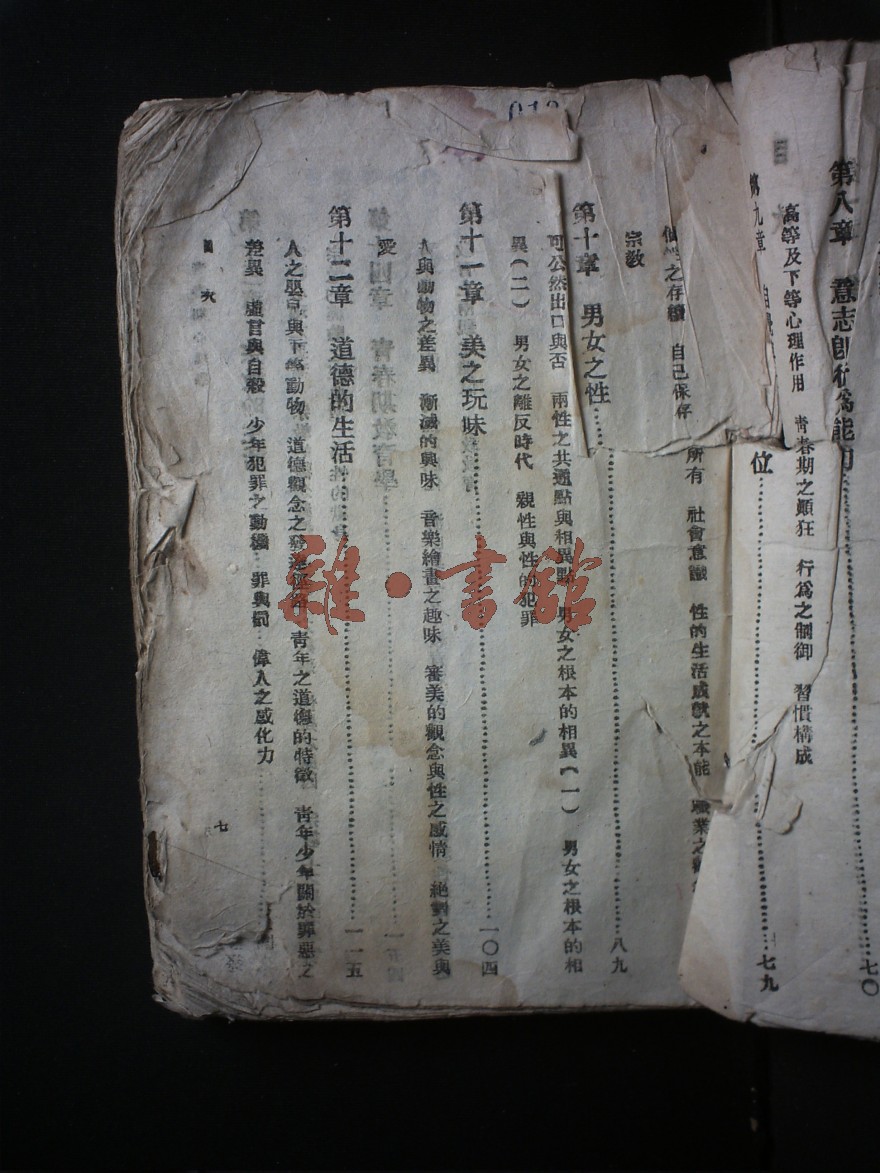 第八章 意志即行為能力……七〇
高等及下等心理作用 青春期之顛狂 行為之制御 習慣構成
第九章 自 位……七九
個性之存續 自己保存 所有 社會意識 性的生活成就之本能 職業之
宗教
第十章 男女之性……八九
可公然出口與否 兩性之共通點與相異點 男女之根本的相異(一) 男女之根本的相
異(二) 男女之離反時代 親性與性的犯罪
第十一章 美之玩味……一〇四
人與動物之差異 漸減的興味 音樂繪畫之趣味 審美的觀念與性之感情 絕對之美與
愛
第十二章 道德的生活……一一五
人之嬰兒與下等動物 道德觀念之發達 青年之道德的特徵 青年少年關於罪惡之
差異 虛言與自殺 少年犯罪之動機 罪與罰 偉人之感化力
目次
七
雜·書館